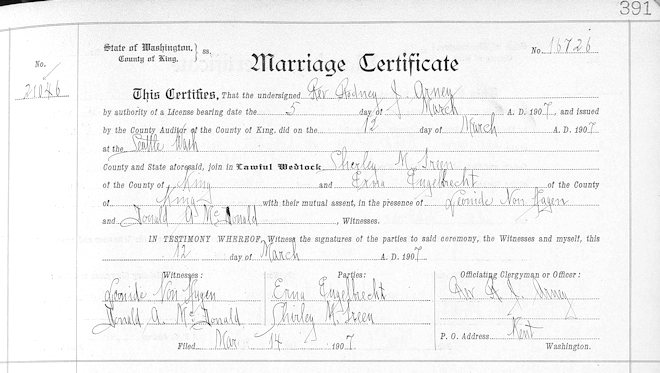 391
State of Washington, } ss.
County of King.
No. 16726
No.
21046
Marriage Certificate
This Certifies, That the undersigned Rev Rodney J. Arney
by authority of a License bearing date the 5 day of March A. D. 1907, and issued
by the County Auditor of the County of King, did on the 12 day of March A. D. 1907
at the Seattle Wash
County and State aforesaid, join in Lawful Wedlock Shirley M. Green
of the County of King and Erna Engelbrecht of the County
of King with their mutual assent, in the presence of Leonide Von Hagen
and Donald A. McDonald, Witnesses.
IN TESTIMONY WHEREOF, Witness the signatures of the parties to said ceremony, the Witnesses and myself, this
12 day of March A. D. 1907
Witnesses: Parties: Officiating Clergyman or Officer:
Leonide Von Hagen Erna Engelbrecht Rev R J. Arney
Donald A. McDonald Shirley M. Green
P. O. Address Kent
Washington.
Filed Mar 14 1907